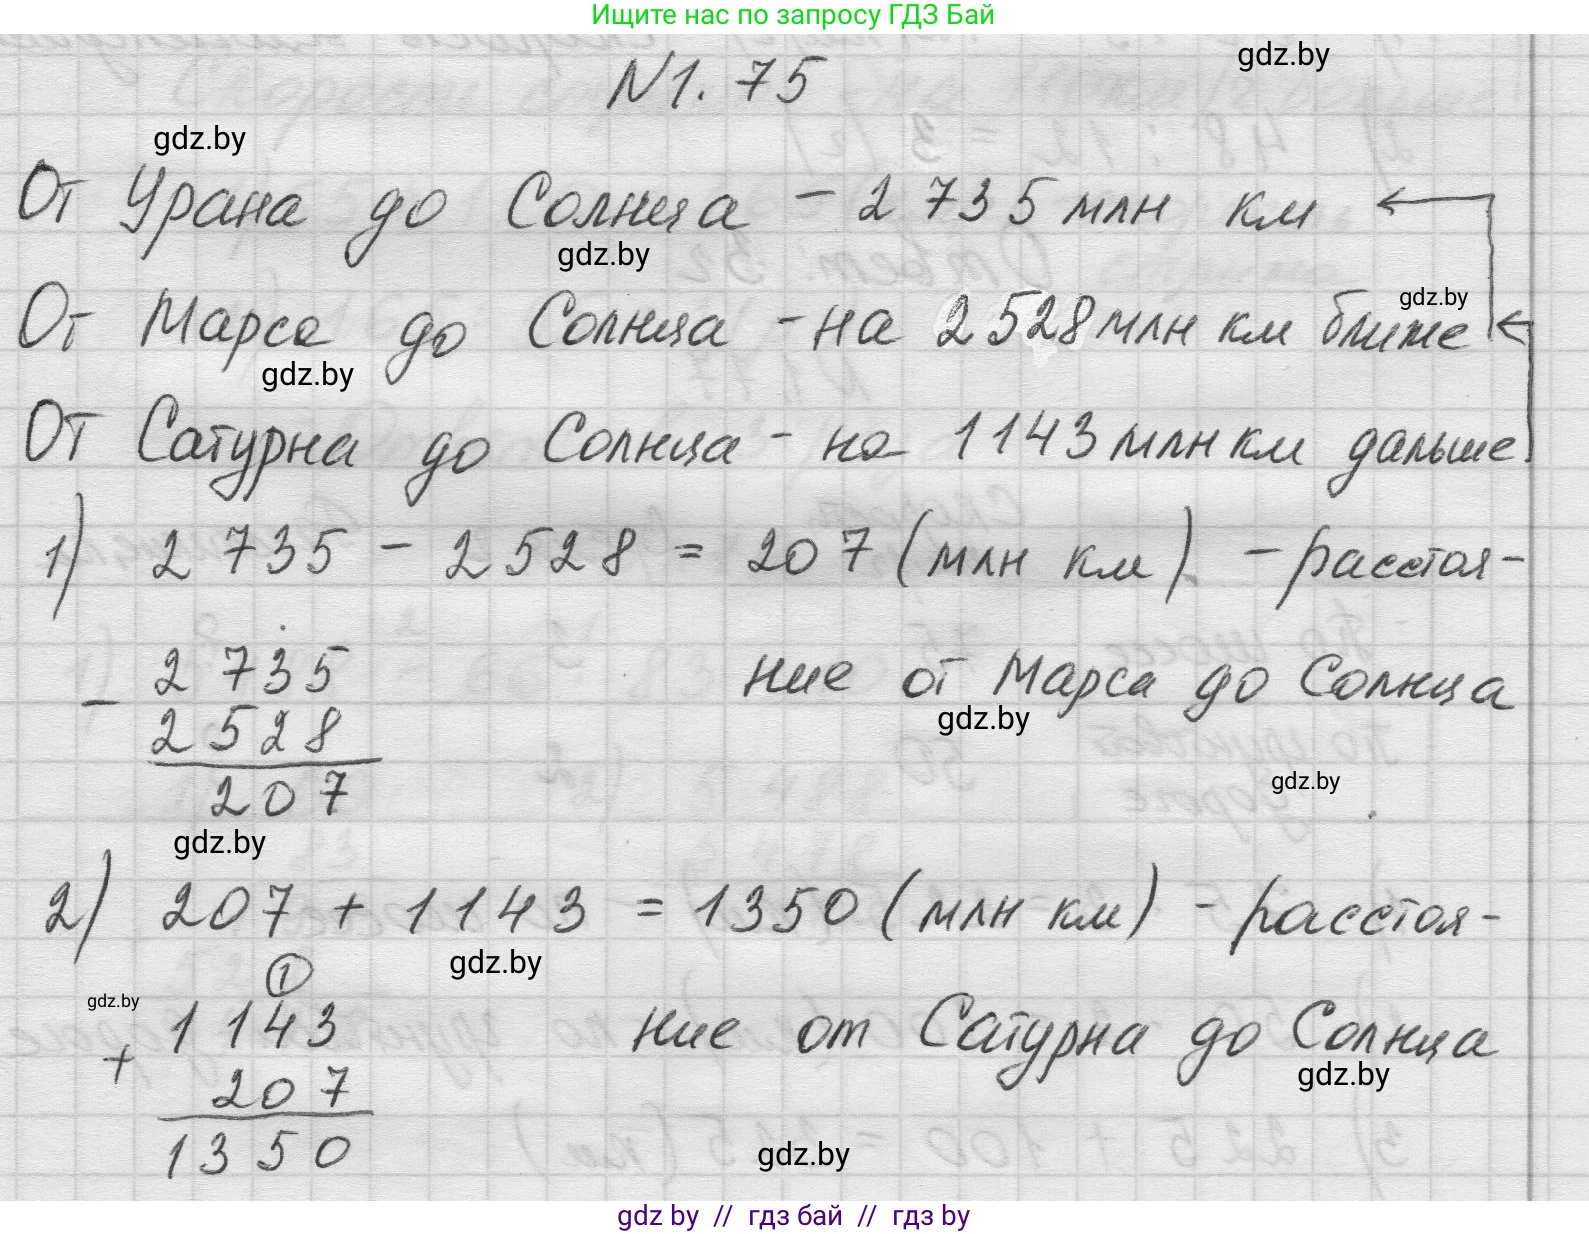 Ищите нас по запросу ГДЗ Бай
gdz.by
N1.75
gdz.by
От Урана до Солнца - 2 735 млн км
gdz.by
gdz.by
От Марса до Солнца - на 2 528 млн км ближе
gdz.by
От Сатурна до Солнца - на 1 143 млн км дальше.
1) 2 735 - 2 528 = 207 (млн км) - расстоя-
2 735
ние от Марса до Солнца
gdz.by
-
2 528
207
gdz.by
gdz.by
2) 207 + 1 143 = 1350 (млн км) - расстоя-
gdz.by
1
gdz.by
1 143
ние от Сатурна до Солнца
+
gdz.by
207
1350
gdz.by
gdz by // гдз бай // гдз by